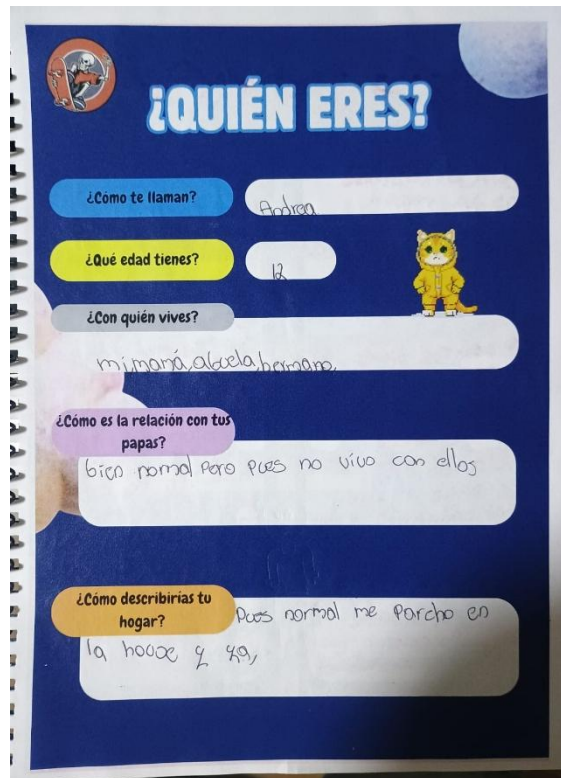 ¿QUIÉN ERES?
¿Cómo te llaman?
Andrea
¿Qué edad tienes?
12
¿Con quién vives?
mi mamá, abuela, hermano.
¿Cómo es la relación con tus
papas?
bien normal pero pues no vivo con ellos
¿Cómo describirías tu
hogar?
Pues normal me parcho en
la house y ya,